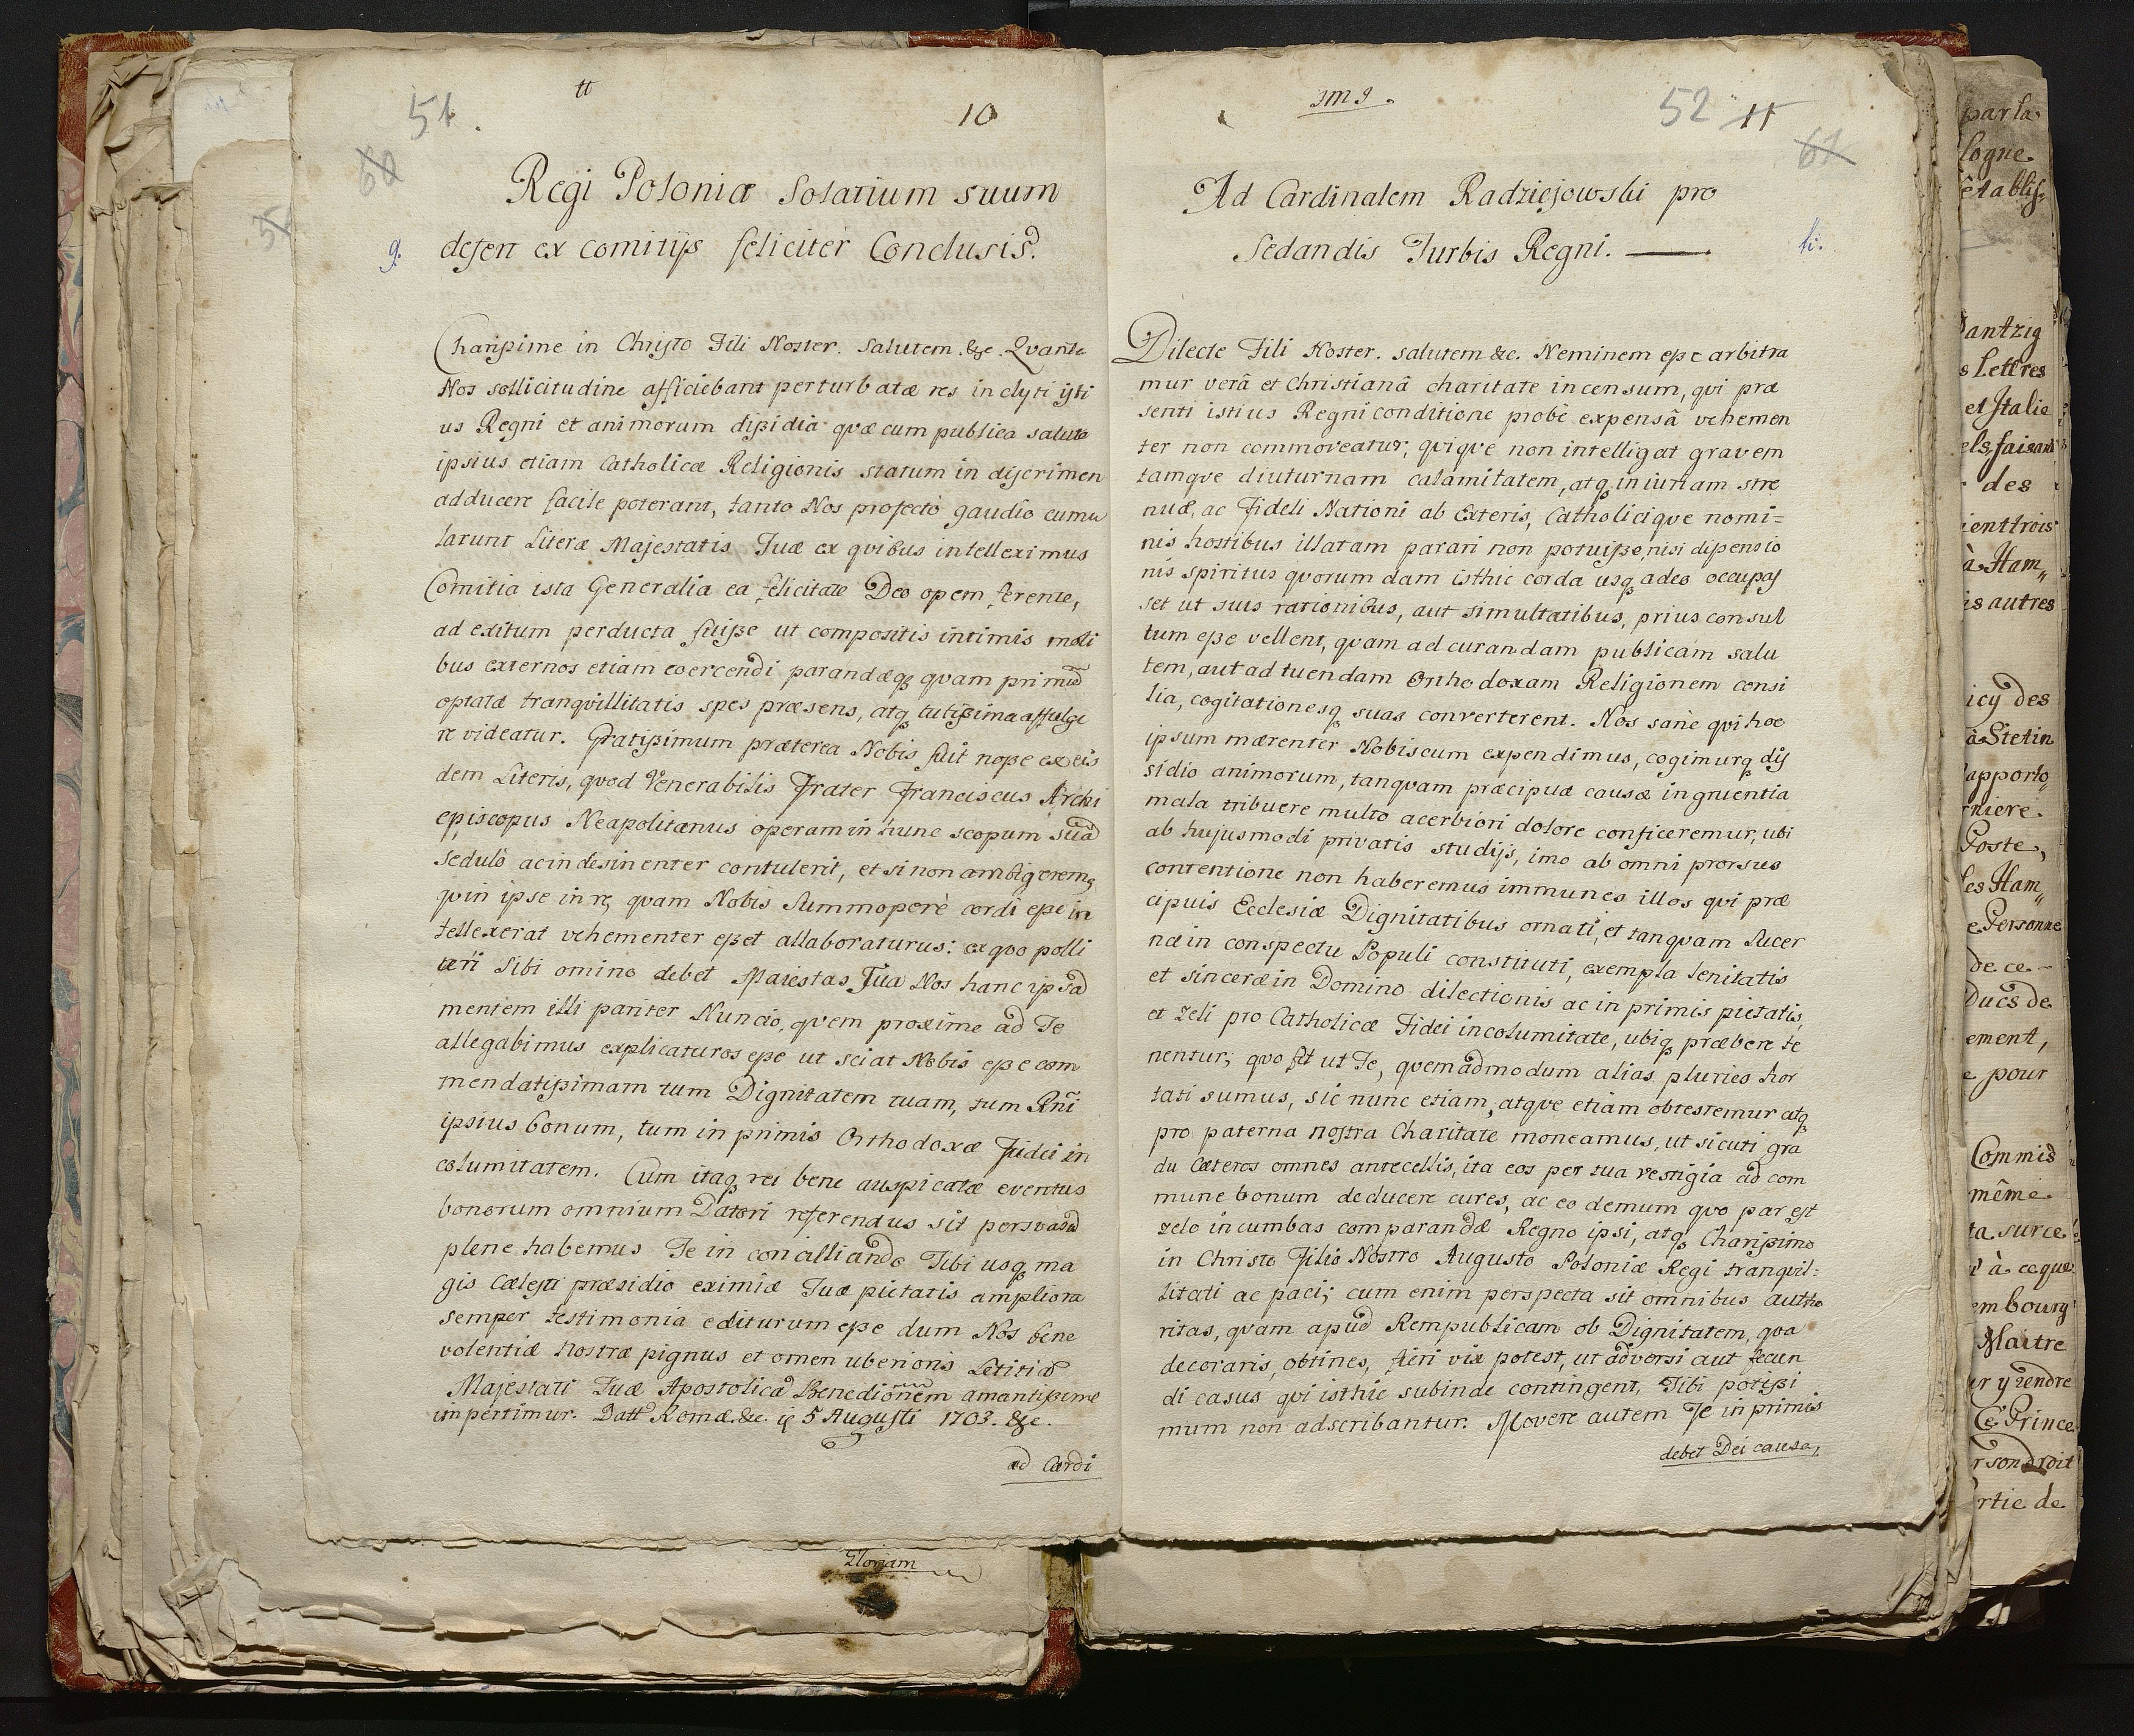 tt
51.
10
60
Regi Poloniæ Solatium suum
g. defert ex comitijs feliciter Conclusis.
Charißime in Christo Fili Noster. Salutem &c. Qvanta
Nos sollicitudine afficiebant perturbatæ res inclyti isti
us Regni et animorum dißidia qvæ cum publica salute
ipsius etiam Catholicæ Religionis statum in discrimen
adducere facile poterant, tanto Nos profectò gaudio cumu
larunt Literæ Majestatis Tuæ ex qvibus intelleximus
Comitia ista Generalia ea felicitate Deo opem ferente,
ad exitum perducta fuiße ut compositis intimis moti
bus externos etiam coercendi parandæq quam primũ
optatæ tranqvillitatis spes præsens, atq tutißima affulge
re videatur. Gratißimum præterea Nobis fuit noße ex eis
dem Literis, qvod Venerabilis Frater Franciscus Archi
episcopus Neapolitanus operam in hunc scopum suã
sedulò ac indesinenter contulerit, et si non ambigerem9
qvin ipse in re, qvam Nobis Summoperè cordi eße in
tellexerat vehementer eßet allaboraturus: ex qvo polli
ceri Sibi omino debet Maiestas Tua Nos hanc ipsã
mentem illi pariter Nuncio, qvem proxime ad Te
allegabimus explicaturos eße ut sciat Nobis eße com
mendatißimam tum Dignitatem tuam, tum Rñi
ipsius bonum, tum in primis Orthodoxæ Fidei in
columitatem. Cum itaq rei bene auspicatæ eventus
bonorum omnium Datori referendus sit persvasũ
plene habemus Te in concilliando Tibi usq ma
gis Cælesti præsidio eximiæ Tuæ pietatis ampliora
semper testimonia editurum eße dum Nos bene
volentiæ Nostræ pignus et omen uberioris Letitiæ
Majestati Tuæ Apostolicã Benedionem amantißime
impertimur. Datt Romæ &c. 5 Augusti 1703. &c.
ad Cardi
Gloriam
3m9.
52
11
61
Ad Cardinalem Radziejowski pro
Sedandis Turbis Regni. — h.
Dilecte Fili Noster. salutem &c. Neminem eße arbitra
mur verâ et Christianâ charitate incensum, qvi præ
senti istius Regni conditione probè expensâ vehemen
ter non commoveatur; qviqve non intelligat gravem
tamqve diuturnam calamitatem, atq iniuriam stre
nuæ, ac Fideli Nationi ab Exteris, Catholiciqve nomi=
nis hostibus illatam parari non potuiße, nisi dißensio
nis spiritus qvorumdam isthic corda usq adeo occupas
set ut suis rationibus, aut simultatibus, prius consul
tum eße vellent, qvam ad curandam publicam salu
tem, aut ad tuendam Orthodoxam Religionem consi
lia, cogitationesq suas converterent. Nos sanè qvi hoc
ipsum mærenter Nobiscum expendimus, cogimurq dis
sidio animorum, tanqvam præcipuæ causæ ingruentia
mala tribuere multo acerbiori dolore conficeremur, ubi
ab hujusmodi privatis studijs, imo ab omni prorsus
contentione non haberemus immunes illos qvi præ
cipuis Ecclesiæ Dignitatibus ornati, et tanqvam lucer
næ in conspectu Populi constituti, exempla lenitatis
et sinceræ in Domino dilectionis ac in primis pietatis,
et zeli pro Catholicæ Fidei incolumitate, ubiq præbere te
nentur; qvo fit ut Te, qvemadmodum alias pluries hor
tati sumus, sic nunc etiam, atqve etiam obtestemur atq
pro paterna nostra Charitate moneamus, ut sicuti gra
du Cæteros omnes antecellis, ita eos per tua vestigia ad com
mune bonum deducere cures, ac eo demum qvo par est
zelo incumbas comparandæ Regno ipsi, atq Charißimo
in Christo Filio Nostro Augusto Poloniæ Regi tranqvil=
litati ac paci; cum enim perspecta sit omnibus autho
ritas, qvam apud Rempublicam ob Dignitatem, qva
decoraris, obtines, fieri vix potest, ut adversi aut secun
di casus qvi isthic subinde contingent, Tibi potißi
mum non adscribantur. Movere autem Te in primis
debet Dei causa,
par la
logne
établis
Dantzig
s Lettres
et Italie
els faisant
des
ient trois
à Ham„
is autres
icy des
à Stetin
apporto
rniere
Poste,
les Ham„
e Personne
de ce
Ducs de
ement,
e pour
Commis
même
ta surce
r à ce que
embourg
Maitre
er y rendre
Ce Prince
r son droit
rtie de